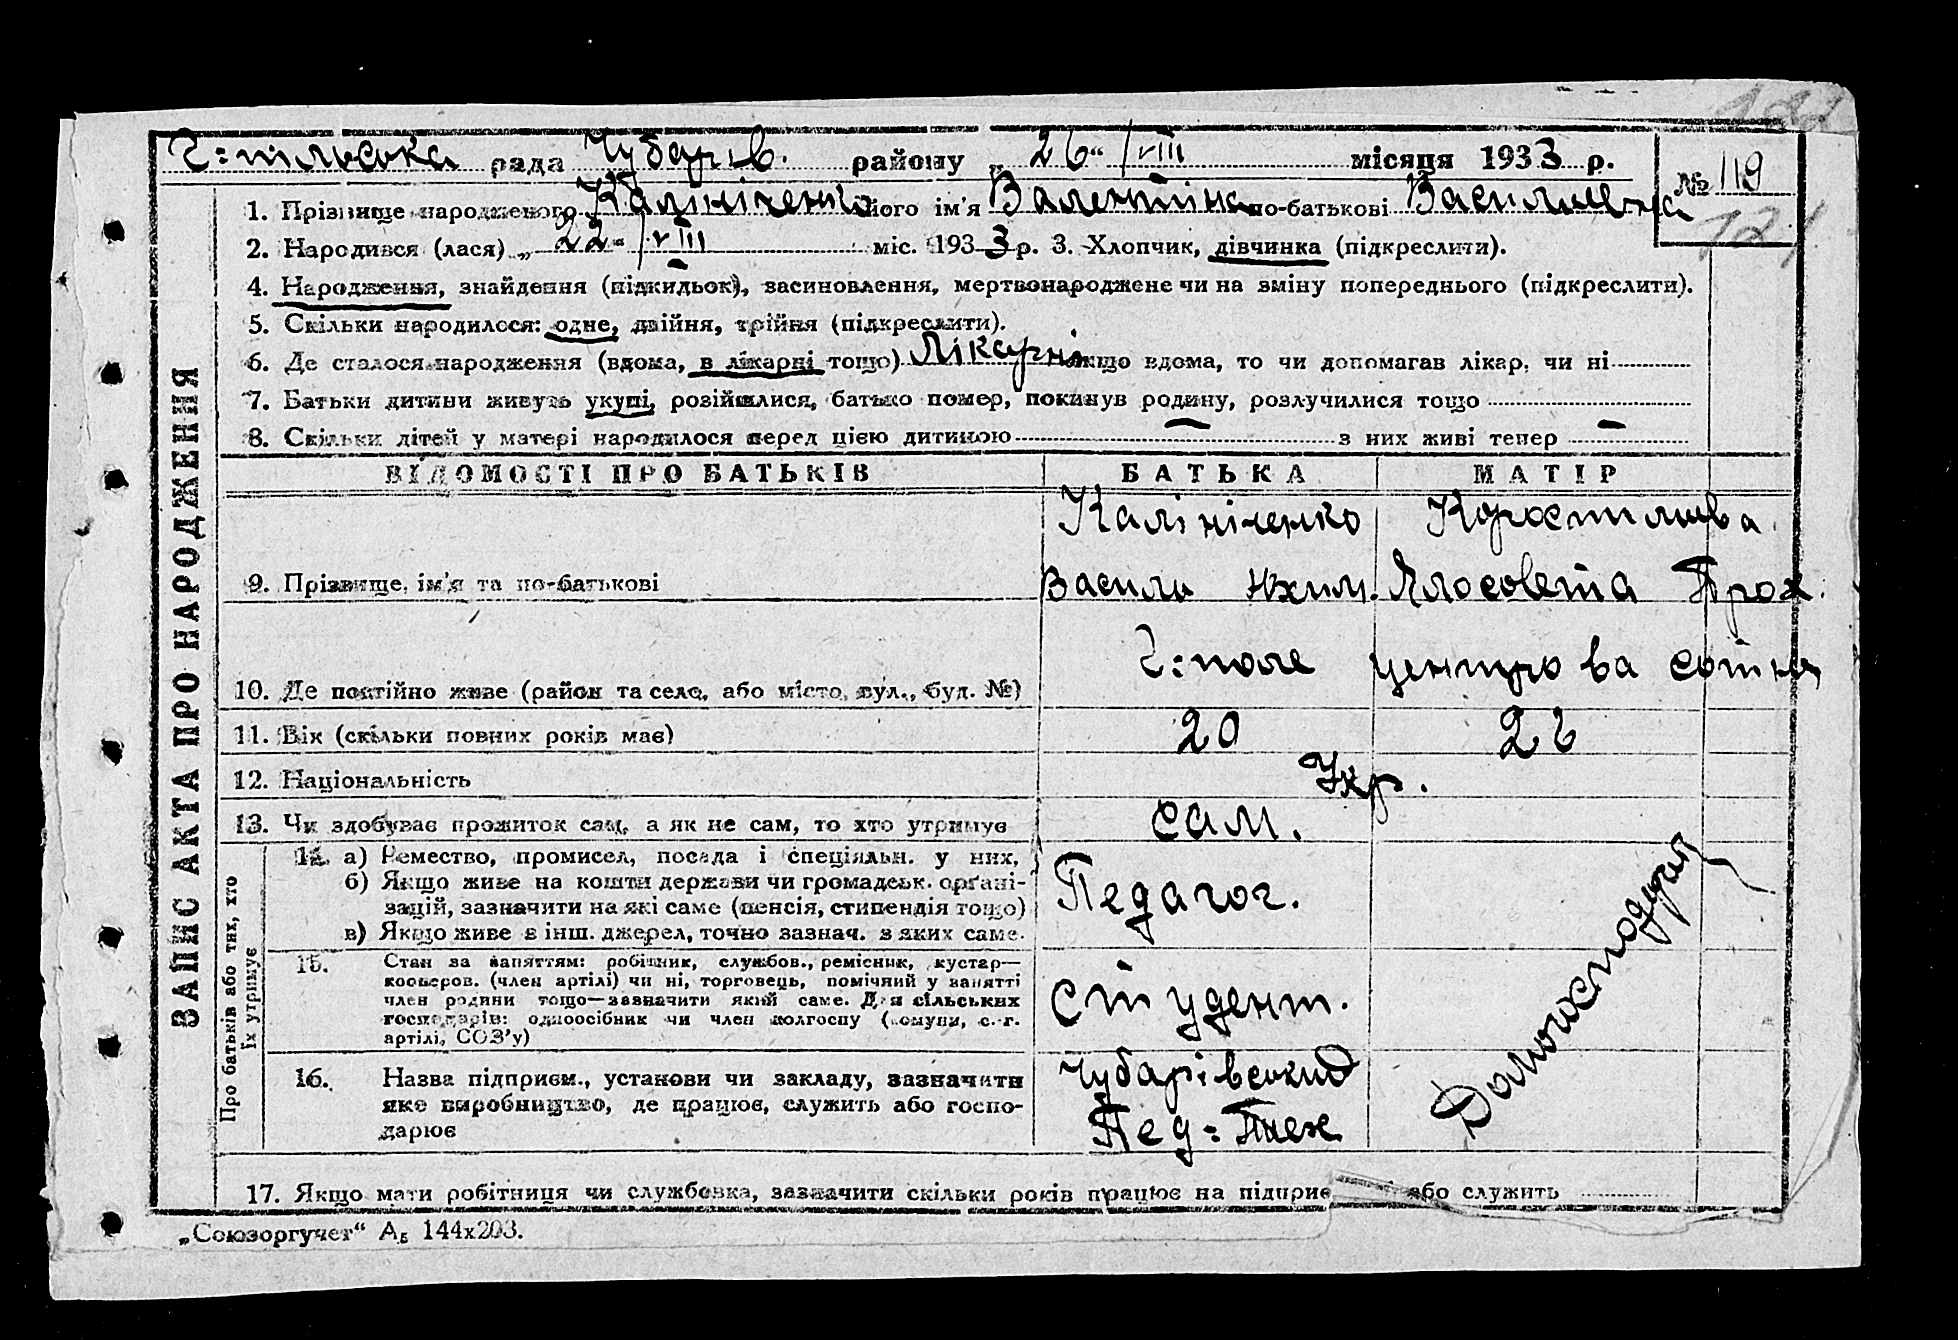 Г=пільська рада Чубарів. району „26" VIII місяця 1933 р.
№ 119
121
1. Прізвище народженого Калініченко його ім'я Валентіна по-батькові Василівна
2. Народився (лася) „22" VIII міс. 1933 р. 3. Хлопчик, дівчинка (підкреслити).
4. Народження, знайдення (підкидьок), засиновлення, мертвонароджене чи на зміну попереднього (підкреслити).
5. Скільки народилося: одне, двійня, трійня (підкреслити).
6. Де сталося народження (вдома, в лікарні тощо) Лікарні якщо вдома, то чи допомагав лікар, чи ні
7. Батьки дитини живуть укупі, розійшлися, батько помер, покинув родину, розлучилися тощо
8. Скільки дітей у матері народилося перед цією дитиною — з них живі тепер —
ВІДОМОСТІ ПРО БАТЬКІВ БАТЬКА МАТІР
Калініченко
9. Прізвище, ім'я та по-батькові Василь Юхим. Прох.
10. Де постійно живе (район та село, або місто, вул., буд. №) Г=поле центрова сотня
11. Вік (скільки повних років має) 20 26
12. Національність Укр.
13. Чи здобуває прожиток сам, а як не сам, то хто утримує сам.
14. а) Ремество, промисел, посада і спеціяльн. у них,
б) Якщо живе на кошти держави чи громадськ. органі-
зацій, зазначити на які саме (пенсія, стипендія тощо)
в) Якщо живе з інш. джерел, точно зазнач. з яких саме.
Педагог.
15. Стан за заняттям: робітник, службов., ремісник, кустар—
кооперов. (член артілі) чи ні, торговець, помічний у занятті
член родини тощо—зазначити який саме. Для сільських
господарів: одноосібник чи член колгоспу (комуни, с.-г.
артілі, СОЗ'у)
Студент.
16. Назва підприєм., установи чи закладу, зазначити
яке виробництво, де працює, служить або госпо-
дарює
Чубарівський
Пед=Тех
Домогосподарка
17. Якщо мати робітниця чи службовка, зазначити скільки років працює на підприє або служить
ЗАПИС АКТА ПРО НАРОДЖЕННЯ
Про батьків або тих, хто
їх утримує
„Союзоргучет" А₅ 144х203.